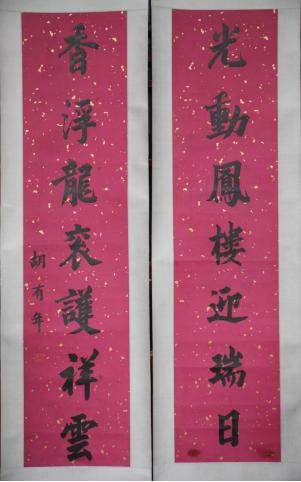 光動鳳樓迎瑞日
香浮龍袞護祥雲
胡有年